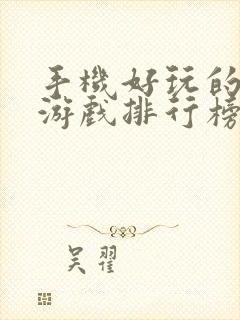 手機好玩的
游戲排行榜
吴翟